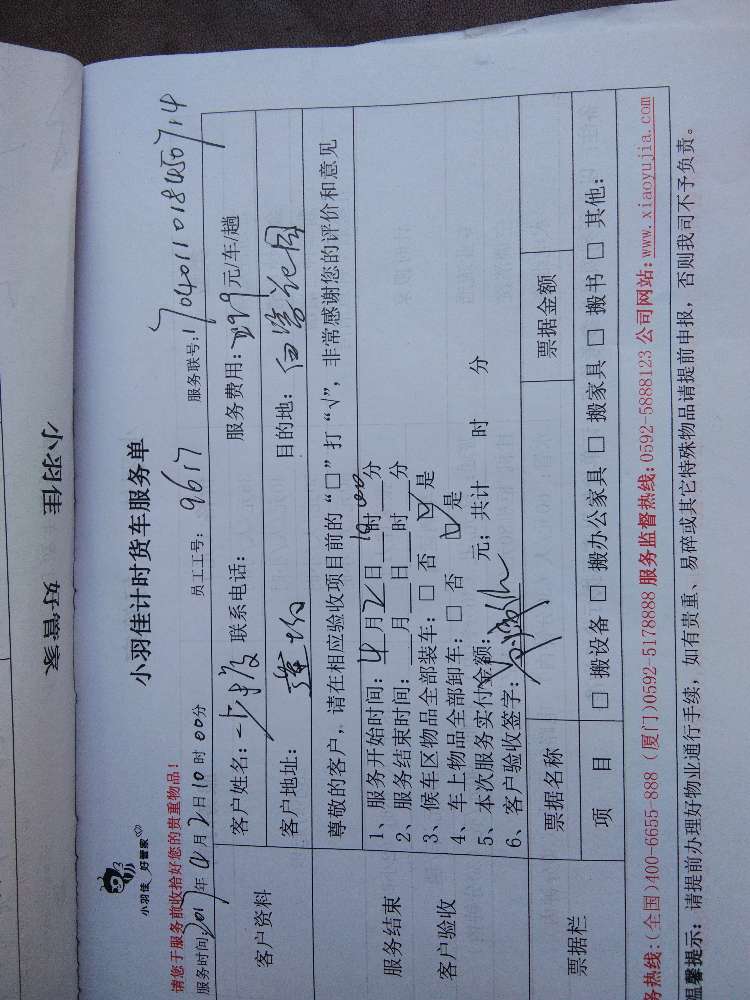 小羽佳 好管家
小羽佳 好管家
小羽佳计时货车服务单
请您于服务前收拾好您的贵重物品!
服务时间:2017年4月2日10时00分 员工工号: 9617 服务联号:1704011018450714
客户资料
客户姓名: 联系电话: 服务费用:299元/车/趟
客户地址: 目的地:
尊敬的客户,请在相应验收项目前的“□”打“√”,非常感谢您的评价和意见
服务结束
客户验收
1、服务开始时间:4月2日10时00分
2、服务结束时间:__月__日__时__分
3、候车区物品全部装车:□ 否 ☑ 是
4、车上物品全部卸车:□ 否 ☑ 是
5、本次服务实付金额: 元;共计 时 分
6、客户验收签字:
票据栏
票据名称 票据金额
项 目 □ 搬设备 □ 搬办公家具 □ 搬家具 □ 搬书 □ 其他:
务热线:(全国)400-6655-888 (厦门)0592-5178888 服务监督热线:0592-5888123 公司网站:www.xiaoyujia.com
温馨提示:请提前办理好物业通行手续,如有贵重、易碎或其它特殊物品请提前申报,否则我司不予负责。